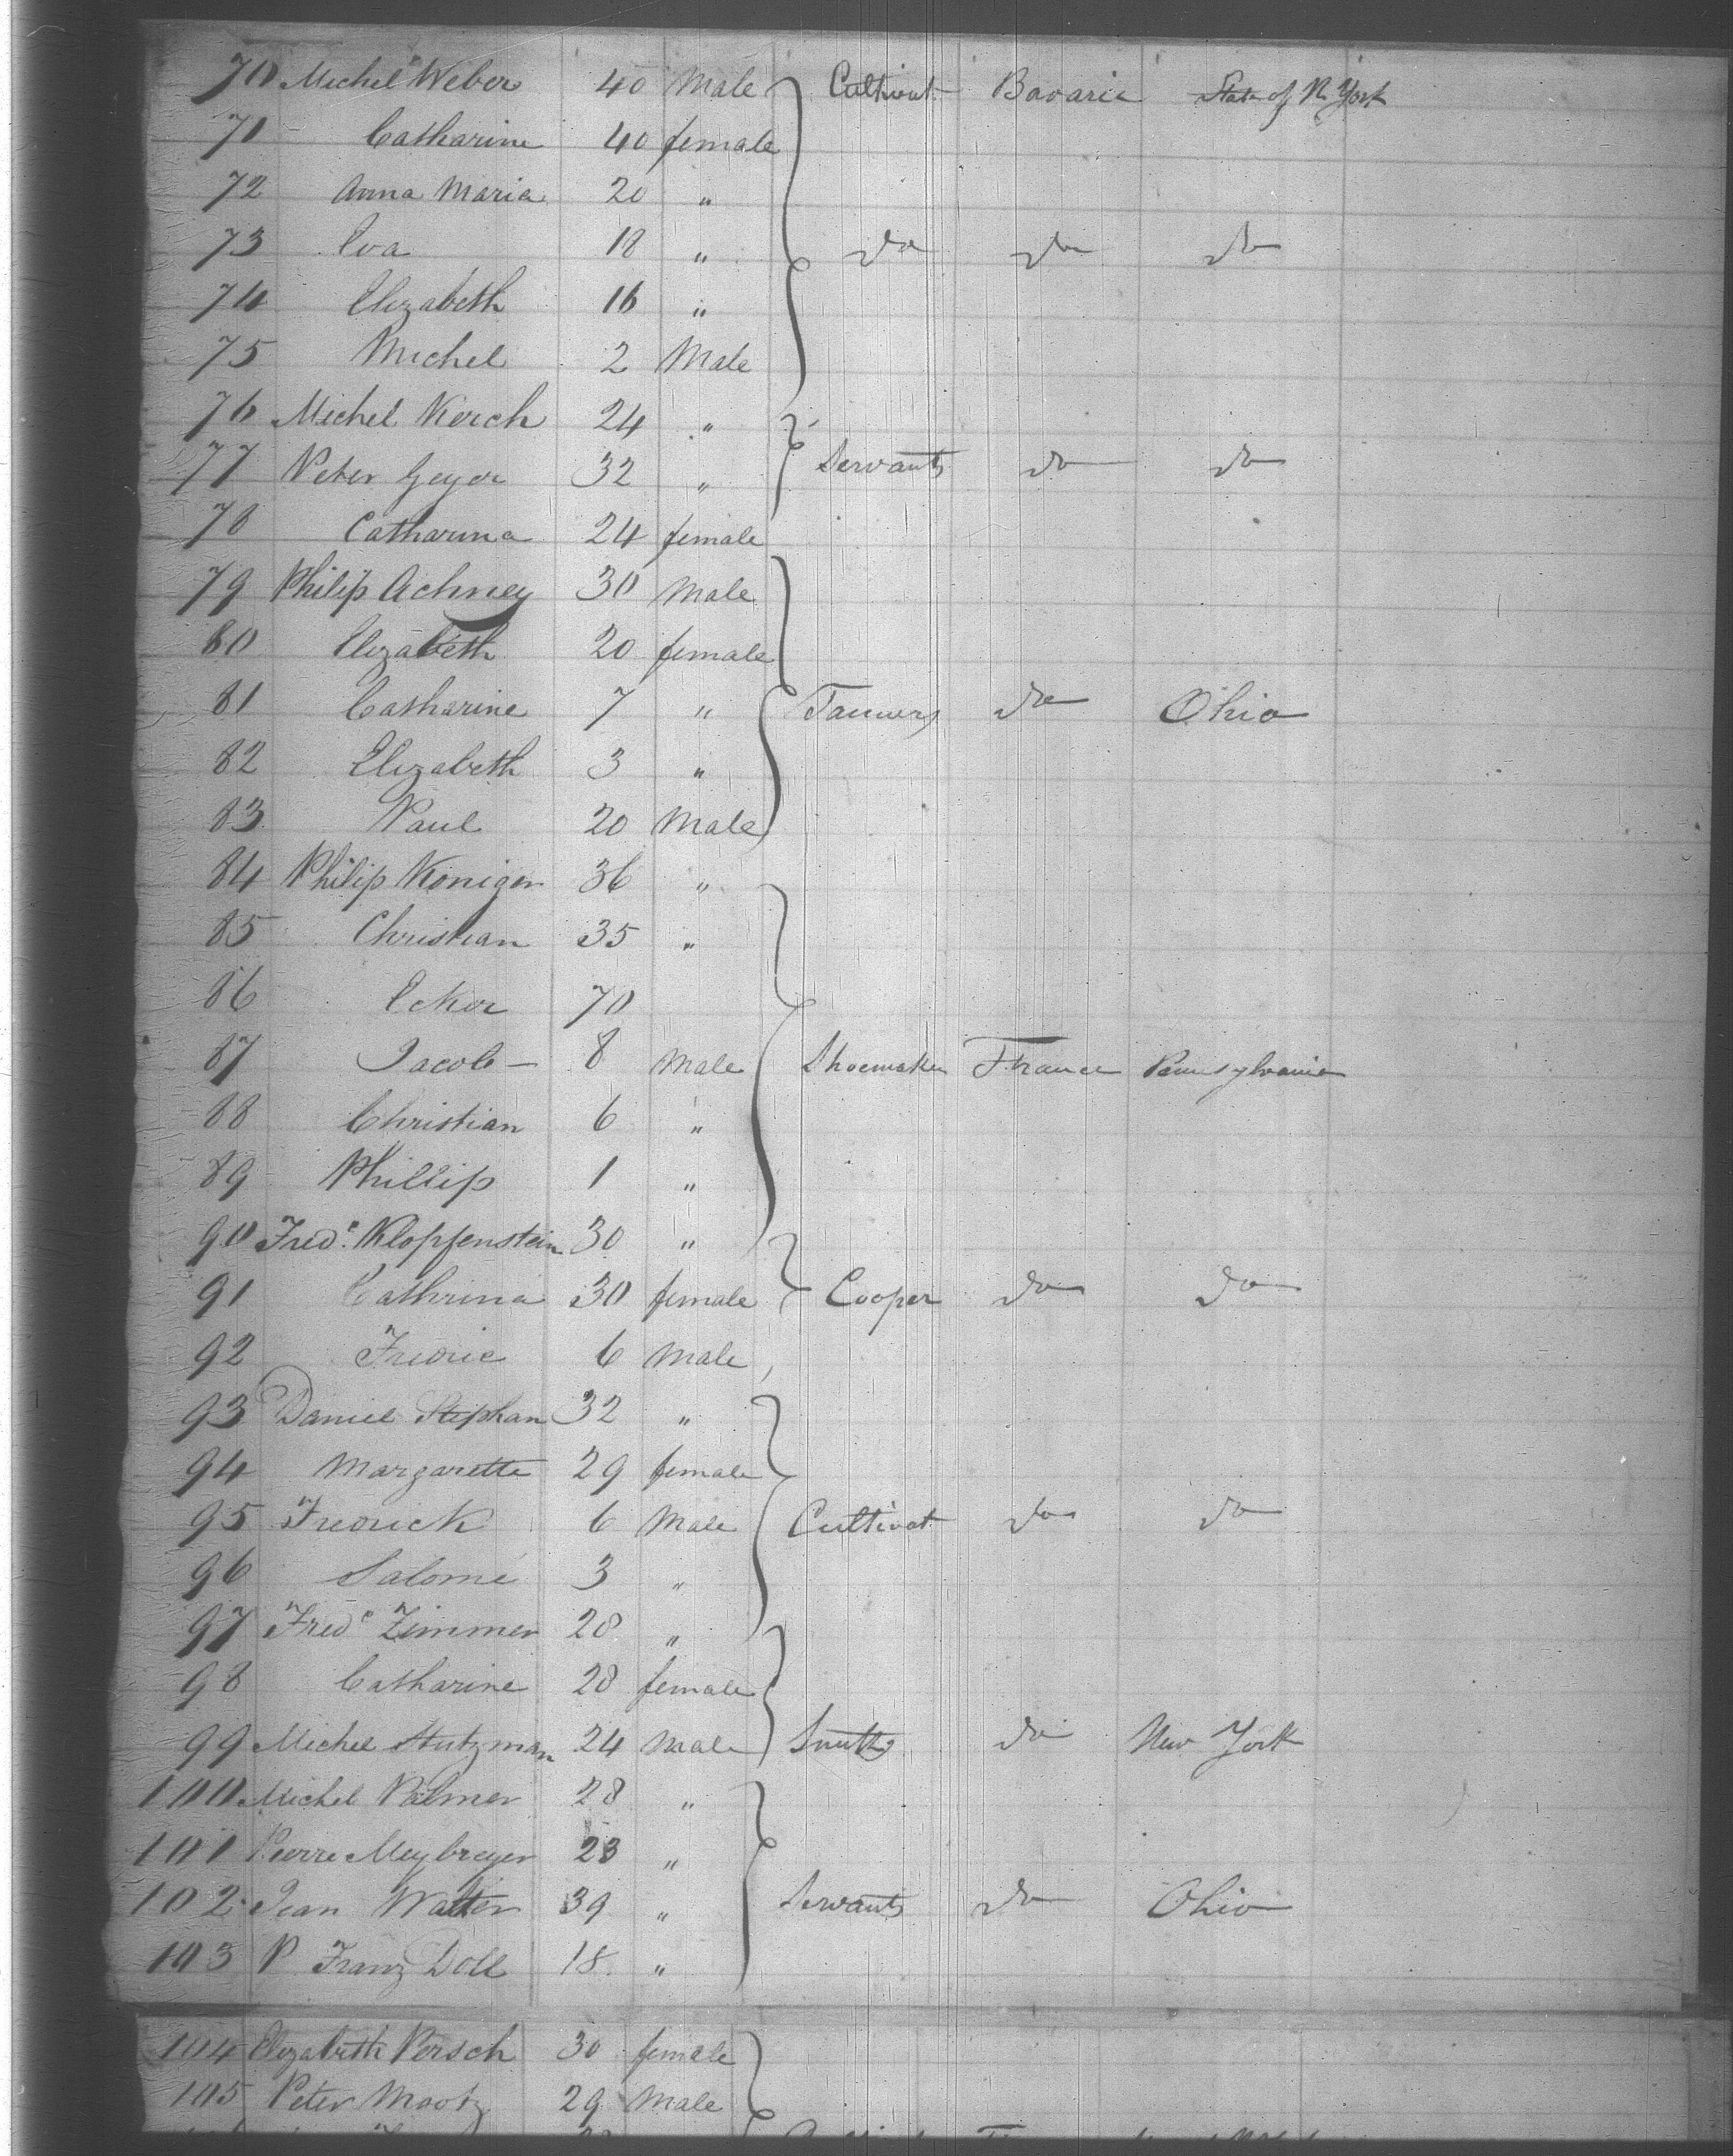 70 Michel Weber 40 Male Cultivat. Bavaria State of N. York
71 Catharine 40 female
72 Anna Maria 20 "
73 Eva 18 " do do do
74 Elizabeth 16 "
75 Michel 2 Male
76 Michel Kerch 24 "
77 Peter Geyer 32 " Servants do do
78 Catharina 24 female
79 Philip Achney 30 Male
80 Elizabeth 20 female
81 Catharine 7 " Tanners do Ohio
82 Elizabeth 3 "
83 Paul 20 Male
84 Philip Koniger 36 "
85 Christian 35 "
86 70
87 Jacob 8 Male Shoemaker France Pennsylvania
88 Christian 6 "
89 Phillip 1 "
90 Fredc. Klopfenstein 30 "
91 Cathrina 30 female Cooper do do
92 Fredric 6 Male
93 Daniel Stephan 32 "
94 Margarette 29 female
95 Fredrick 6 Male Cultivat. do do
96 Salomé 3 "
97 Fredc Zimmer 28 "
98 Catharine 28 female
99 Michel Stutzman 24 Male Smiths do New York
100 Michel Palmer 28 "
101 Pierre Meybreyer 23 "
102 Jean Walter 39 " Servants do Ohio
103 P Franz Doll 18 "
104 Elizabeth Persch 30 female
105 Peter Mootz 29 Male